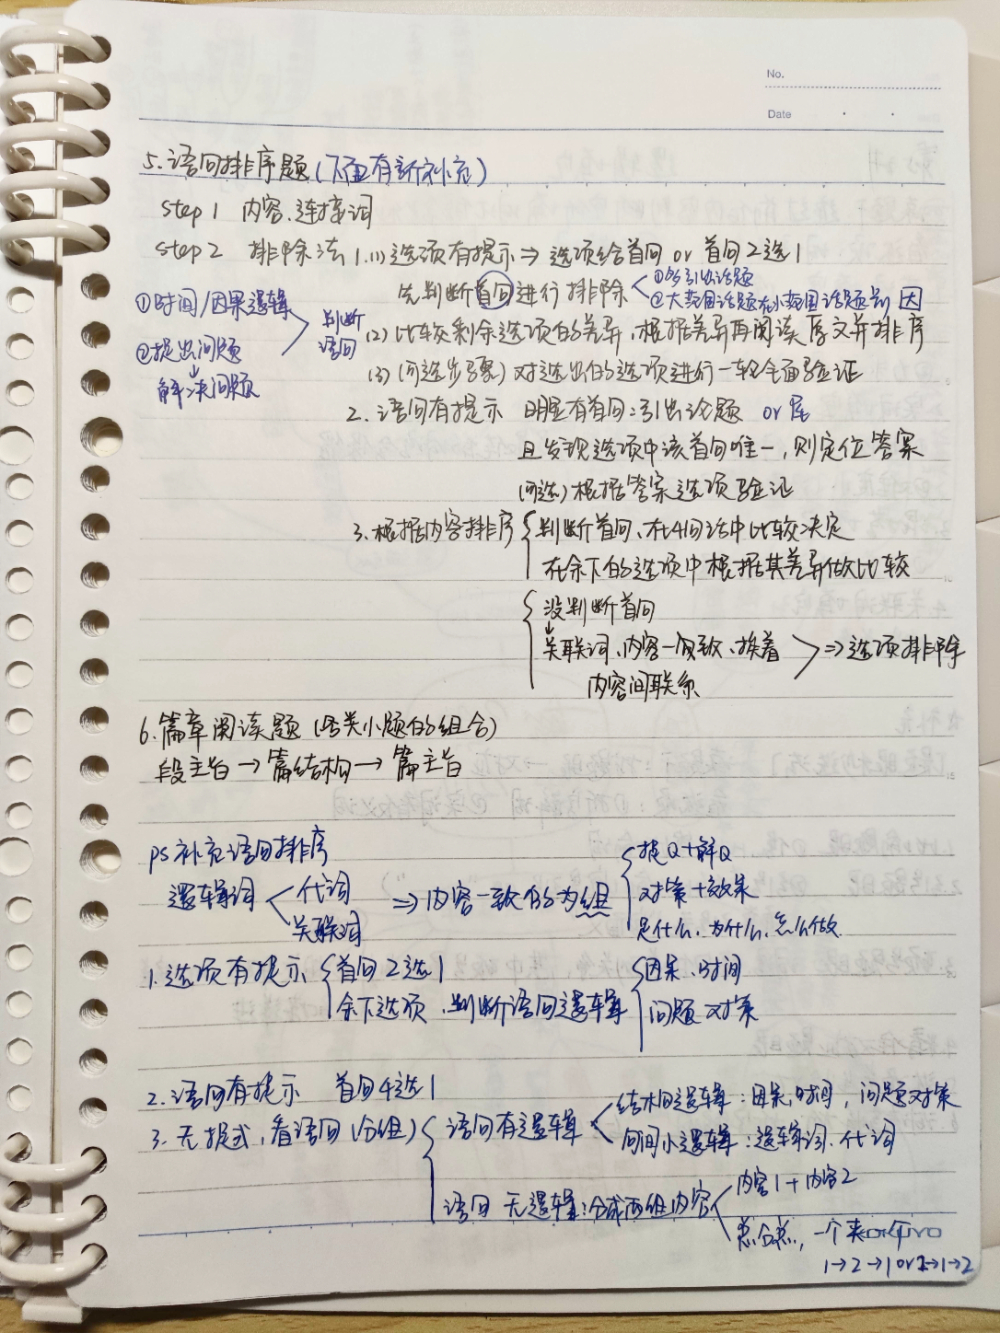 No.
Date
5.语句排序题(下面有新补充)
step 1 内容、连接词
step 2 排除法 1.(1)选项有提示⇒选项给首句 or 首句2选1
先判断首句进行排除 ①多引出话题
②大范围话题在小范围话题前 因
①时间/因果逻辑
②提出问题
↓
解决问题
判断
语句
(2)比较剩余选项的差异,根据差异再阅读原文并排序
(3)(可选步骤)对选出的选项进行一轮全面验证
2.语句有提示 明显有首句:引出论题 or 尾
且发现选项中该首句唯一,则定位答案
(可选)根据答案选项验证
3.根据内容排序 判断首句、在4句话中比较决定
在余下的选项中根据其差异做比较
没判断首句
↓
关联词、内容一致、挨着 ⇒选项排除
内容间联系
6.篇章阅读题(各类小题的组合)
段主旨→篇结构→篇主旨
ps补充语句排序
逻辑词 代词
关联词
⇒内容一致的为组
提Q+解Q
对策+效果
是什么、为什么、怎么做
1.选项有提示 首句2选1
余下选项,判断语句逻辑
因果、时间
问题 对策
2.语句有提示 首句4选1
3.无提示,看语句(分组)
语句有逻辑 结构逻辑:因果,时间,问题对策
句间小逻辑:逻辑词、代词
语句无逻辑:分成两组内容 内容1+内容2
总分总,一个来
KOKUYO
1→2→1 or 2→1→2